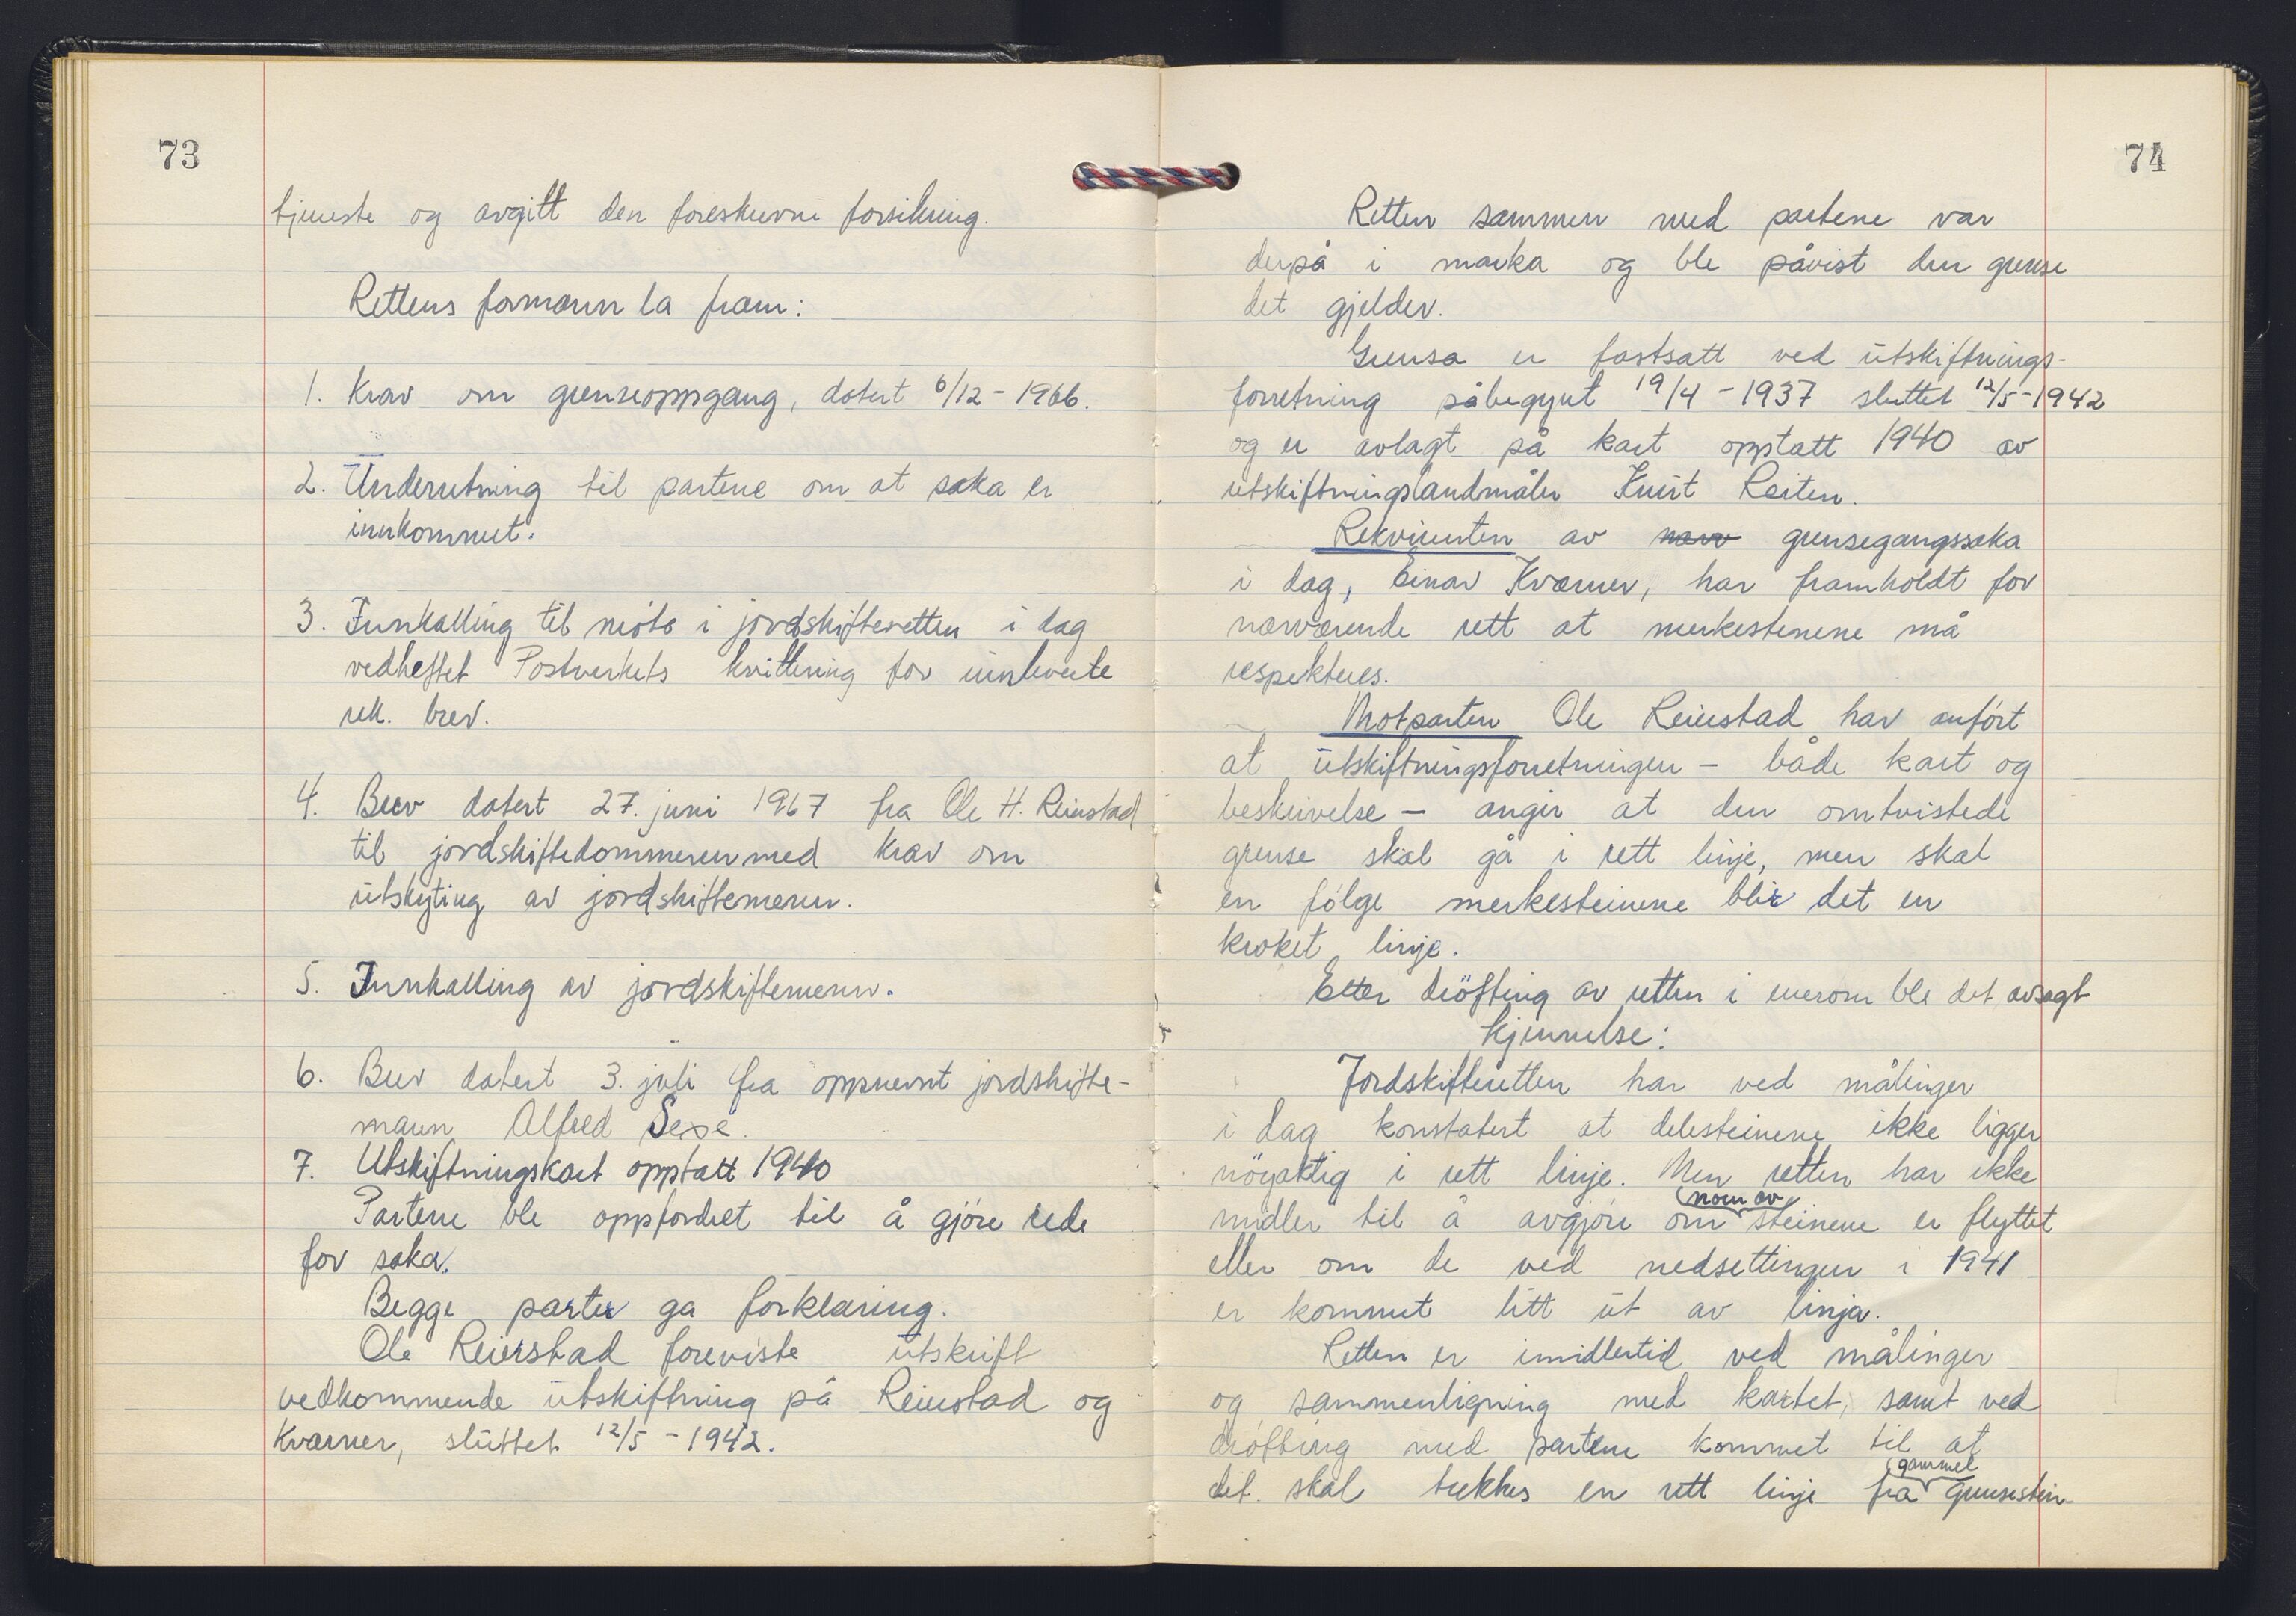 73
tjeneste og avgitt den foreskrevne forsikring.
Rettens formann la fram:
1. Krav om grenseoppgang, datert 6/12 - 1966.
2. Underretning til partene om at saka er
innkommet.
3. Innkalling til møte i jordskifteretten i dag
vedheftet Postverkets kvittering for innleverte
rek. brev.
4. Brev datert 27. juni 1967 fra Ole H. Reierstad
til jordskiftedommeren med krav om
utskyting av jordskiftemenn.
5. Innkalling av jordskiftemenn.
6. Brev datert 3. juli fra oppnevnt jordskifte-
mann Alfred Sexe.
7. Utskiftningskart opptatt 1940
Partene ble oppfordret til å gjöre rede
for saka.
Begge parter ga forklaring.
Ole Reierstad foreviste utskrift
vedkommende utskiftning på Reierstad og
Kværner, sluttet 12/5 - 1942.
74
Retten sammen med partene var
derpå i marka og ble påvist den grense
det gjelder.
Grensa er fastsatt ved utskiftnings-
forretning påbegynt 19/4 - 1937 sluttet 12/5 - 1942
og er avlagt på kart opptatt 1940 av
utskiftningslandmåler Knut Reiten.
Rekvirenten av nærv grensegangssaka
i dag, Einar Kværner, har framholdt for
nærværende rett at merkestenene må
respekteres.
Motparten Ole Reierstad har anfört
at utskiftningsforretningen - både kart og
beskrivelse - angir at den omtvistede
grense skal gå i rett linje, men skal
en fölge merkesteinene blir det en
kroket linje.
Etter dröfting av retten i enerom ble det avsagt
kjennelse:
Jordskifteretten har ved målinger
i dag konstatert at delesteinene ikke ligger
nöyaktig i rett linje. Men retten har ikke
midler til å avgjöre om noen av steinene er flyttet
eller om de ved nedsettingen i 1941
er kommet litt ut av linja.
Retten er imidlertid ved målinger
og sammenligning med kartet, samt ved
dröfting med partene kommet til at
det skal trekkes en rett linje fra gammel grensestein